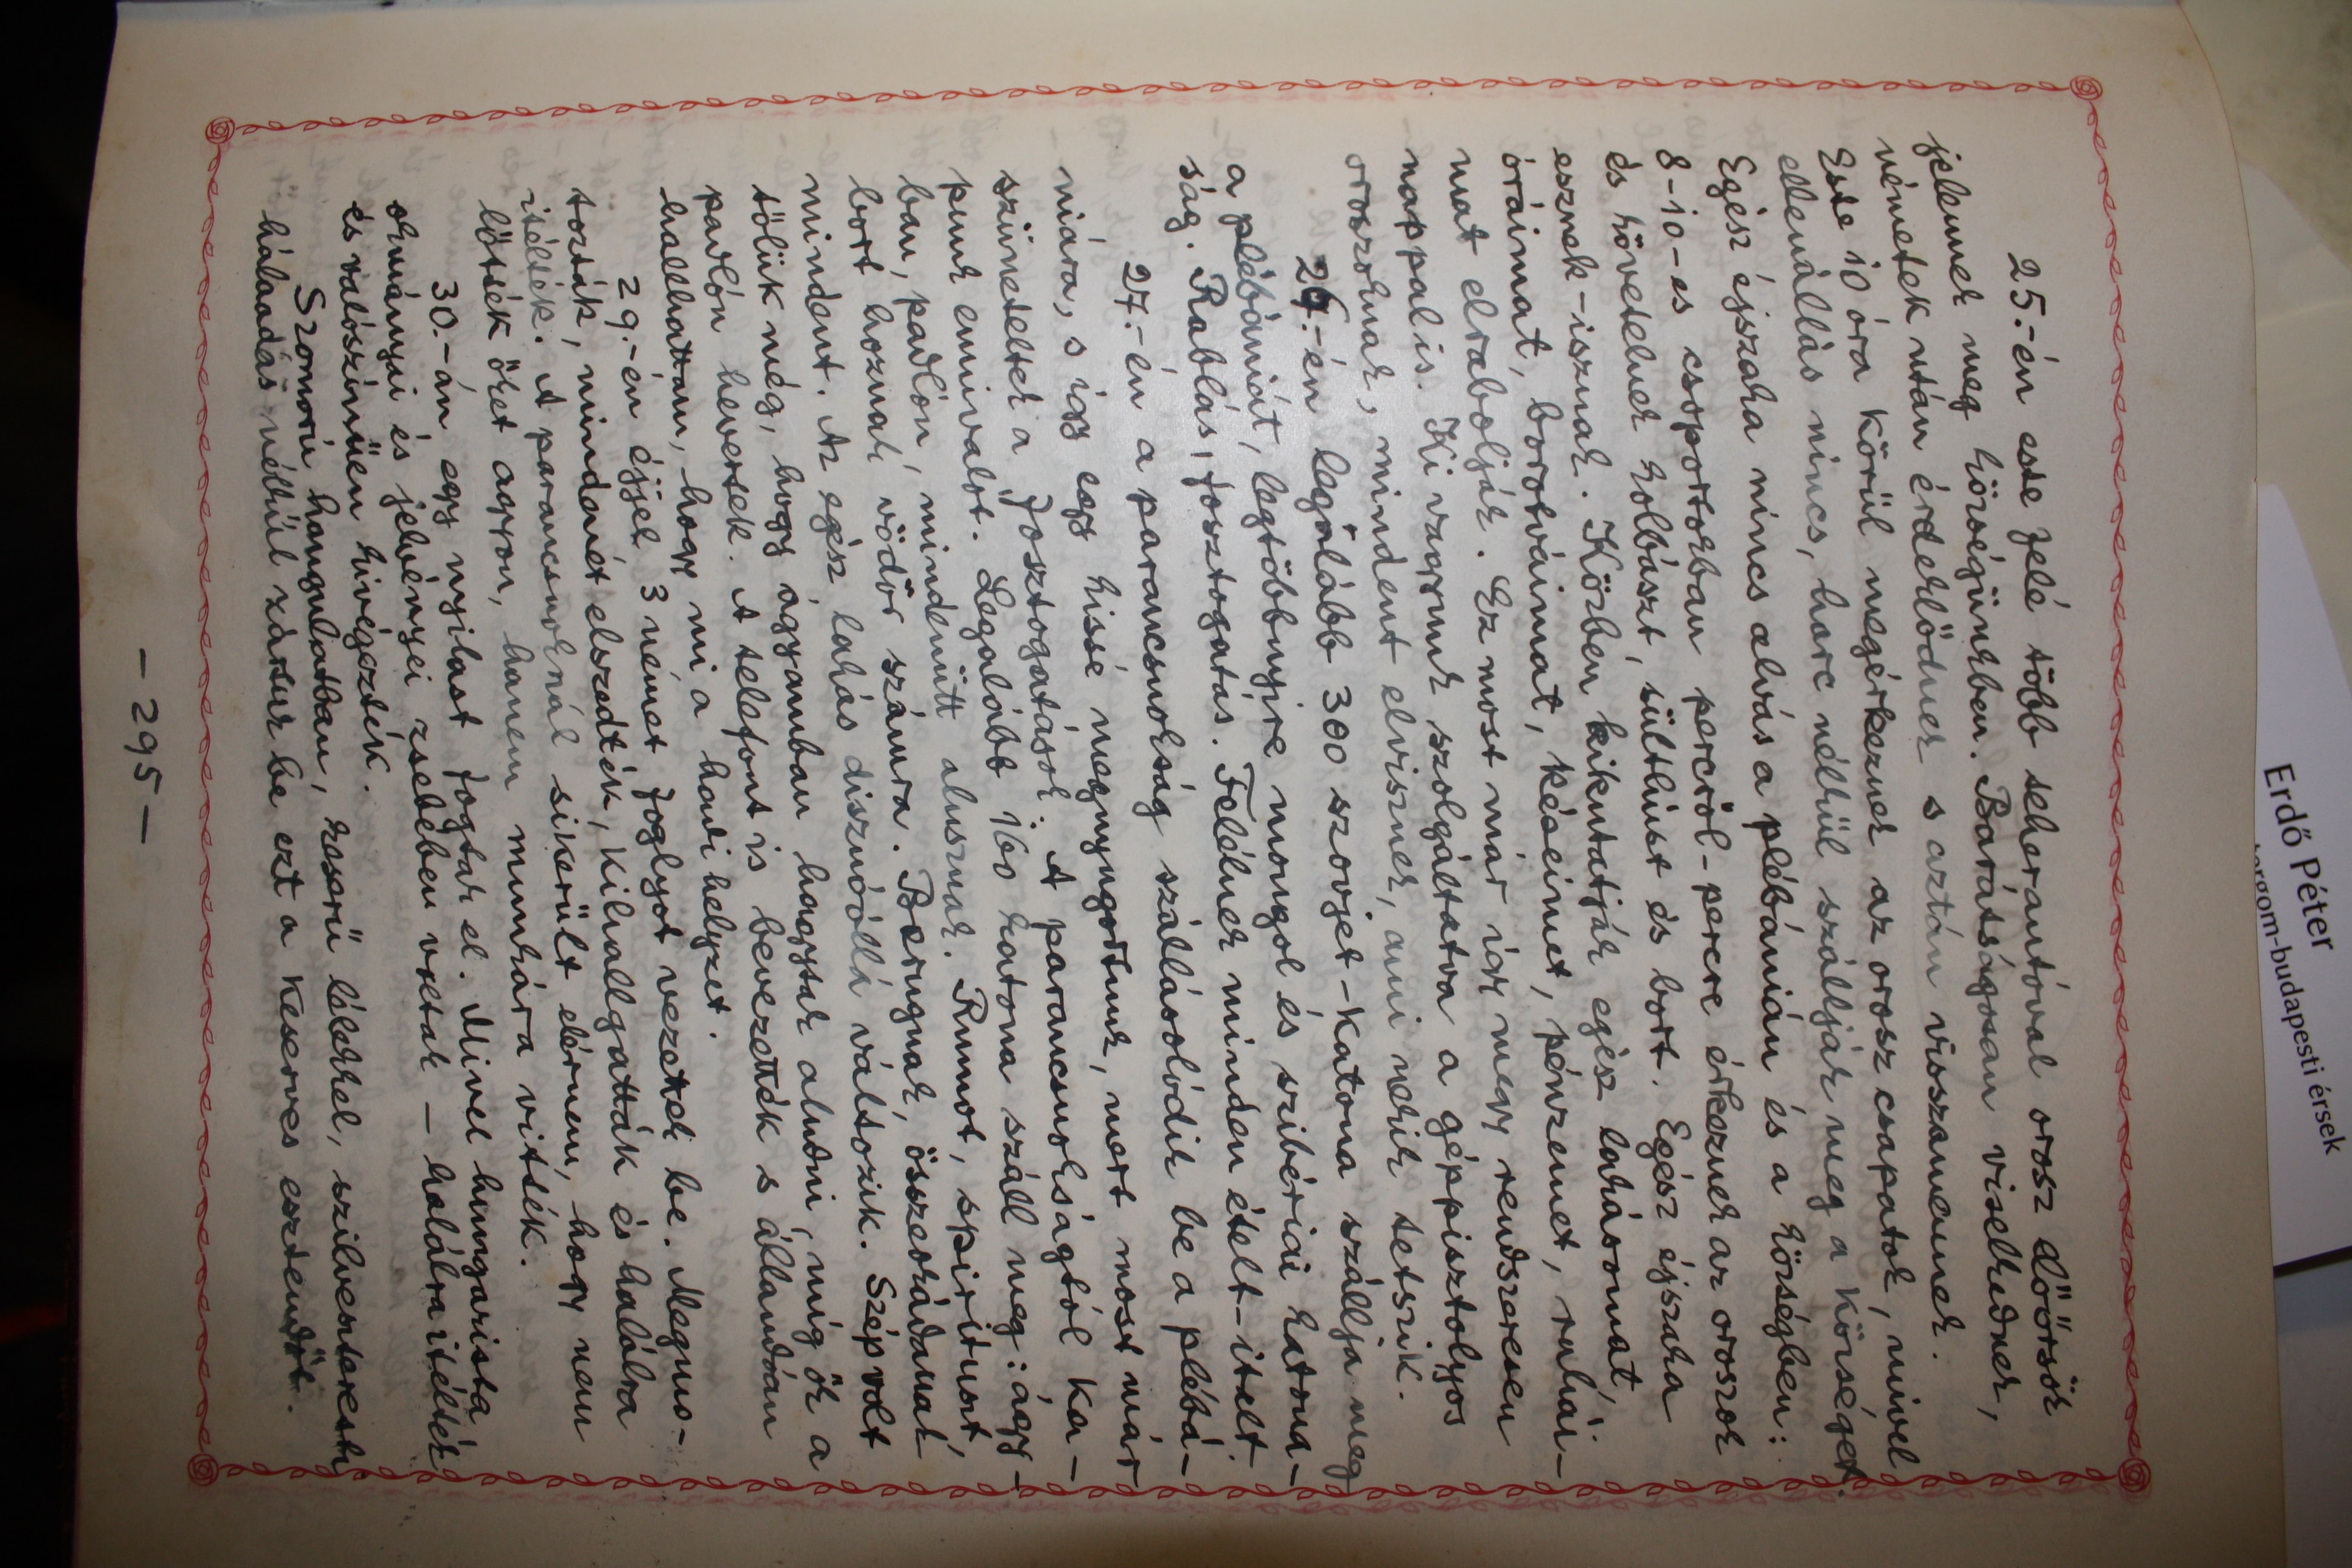 25.-én este felé több teherautóval orosz előőrsök
jelennek meg községünkben. Barátságosan viselkednek,
németek után érdeklődnek s aztán visszamennek.
Este 10 óra körül megérkeznek az orosz csapatok, mivel
ellenállás nincs, harc nélkül szállják meg a községet.
Egész éjszaka nincs alvás a plébánián és a községben:
8-10-es csoportokban percről-percre érkeznek az oroszok
és követelnek kolbászt, sülthúst és bort. Egész éjszaka
esznek-isznak. Közben kikutatják egész lakásomat,
óráimat, borotváimat, késeimet, pénzemet, ruhái-
mat elrabolják. Ez most már így megy rendszeresen
nappal is. Ki vagyunk szolgáltatva a géppisztolyos
oroszoknak, mindent elvisznek, ami nekik tetszik.
26.-én legalább 300 szovjet-katona szállja meg
a plébániát, legtöbbnyire mongol és szibériai katona-
ság. Rablás, fosztogatás. Felélnek minden ételt-italt.
27.-én a parancsnokság szállásolódik be a plébá-
niára, s így egy kissé megnyugodtunk, mert most már
szüneteltek a fosztogatások. A parancsnokságtól ka-
punk ennivalót. Legalább 160 katona száll meg: ágy-
ban, padlón, mindenütt alusznak. Rumot, spirituszt,
bort hoznak vödör számra. Berugnak, összeokádnak
mindent. Az egész lakás disznóóllá változik. Szép volt
tőlük még, hogy ágyamban hagytak aludni, míg ők a
padlón hevertek. A telefont is bevezették s állandóan
hallhattam, hogy mi a hadi helyzet.
29.-én éjjel 3 német foglyot vezettek be. Megmo-
tozták, mindenét elszedték, kihallgatták és halálra
itélték. A parancsnoknál sikerült elérnem, hogy nem
lőtték őket agyon, hanem munkára vitték.
30.-án egy nyilast fogtak el. Mivel hungarista
okmányai és jelvényei zsebében voltak – halálra itélték
és valószínüen kivégezték.
Szomorú hangulatban, keserű lélekkel, szilveszteresti
hálaadás nélkül zártuk be ezt a keserves esztendőt.
– 295 –
Erdő Péter
tergom-budapesti érsek